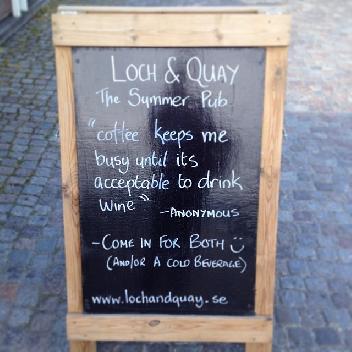 LOCH & QUAY
The Summer Pub
"coffee keeps me
busy until its
acceptable to drink
wine"
-ANONYMOUS
-COME IN FOR BOTH :)
(AND/OR A COLD BEVERAGE)
www.lochandquay.se